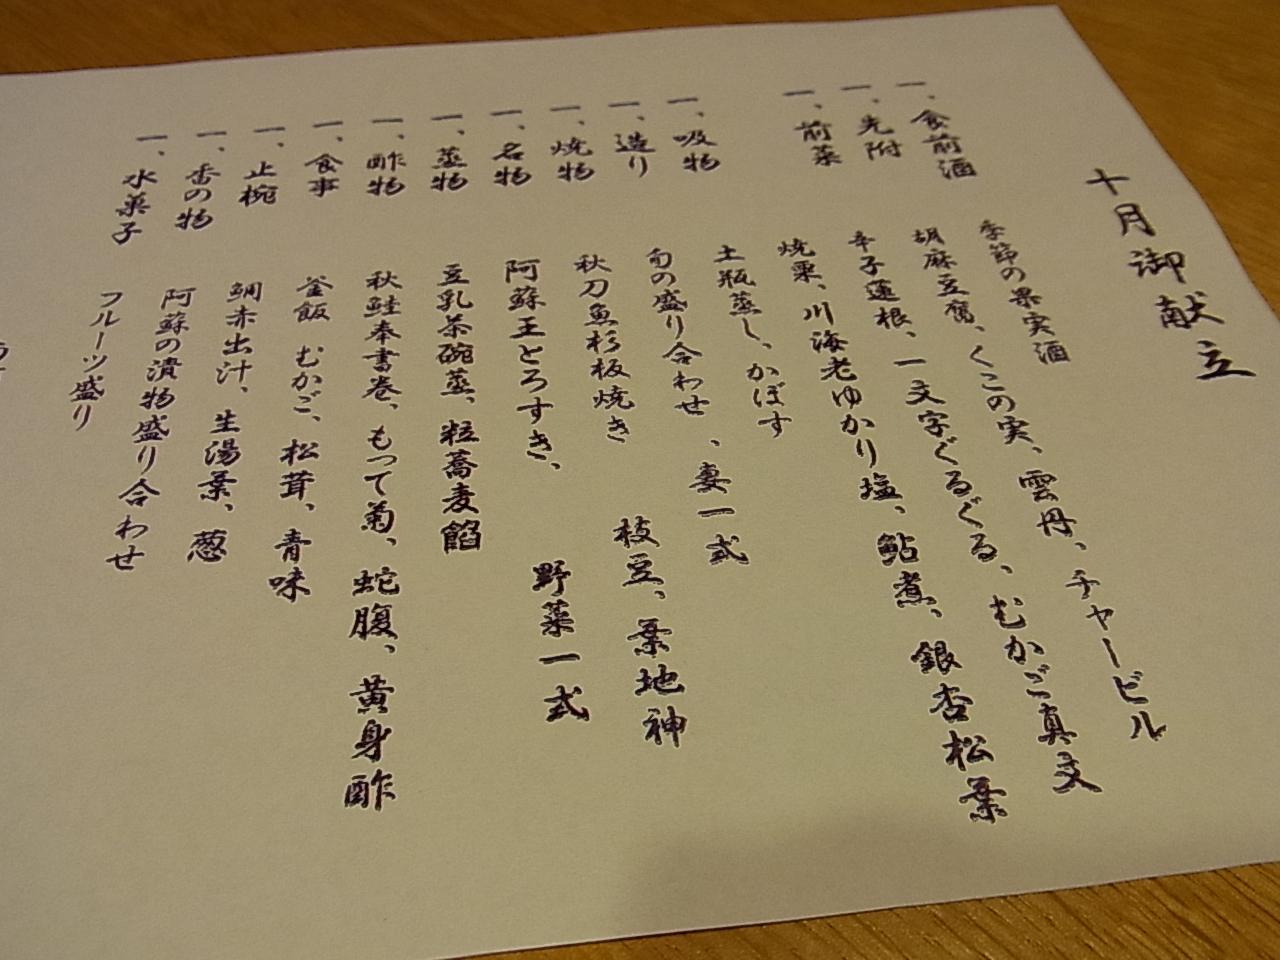 十月御献立
一、食前酒 季節の果実酒
一、先附 胡麻豆腐、くこの実、雲丹、チャービル
一、前菜 辛子蓮根、一文字ぐるぐる、むかご真文
焼栗、川海老ゆかり塩、鮎煮、銀杏松葉
一、吸物 土瓶蒸し、かぼす
一、造り 旬の盛り合わせ、妻一式
一、焼物 秋刀魚杉板焼き 枝豆、葉地神
一、名物 阿蘇王とろすき、 野菜一式
一、蒸物 豆乳茶碗蒸、粒蕎麦餡
一、酢物 秋鮭奉書巻、もって菊、蛇腹、黄身酢
一、食事 釜飯 むかご、松茸、青味
一、止椀 鯛赤出汁、生湯葉、葱
一、香の物 阿蘇の漬物盛り合わせ
一、水菓子 フルーツ盛り